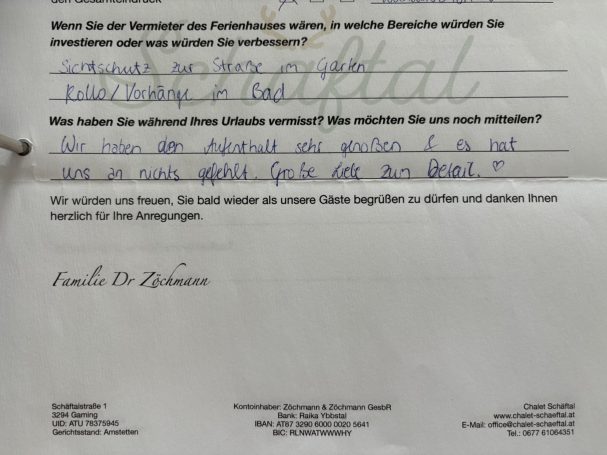 den Gesamteindruck
Wenn Sie der Vermieter des Ferienhauses wären, in welche Bereiche würden Sie
investieren oder was würden Sie verbessern?
Sichtschutz zur Straße im Garten
Rollo/Vorhänge im Bad
Schäftal
Was haben Sie während Ihres Urlaubs vermisst? Was möchten Sie uns noch mitteilen?
Wir haben den Aufenthalt sehr genoßen & es hat
uns an nichts gefehlt. Große Liebe zum Detail. ♡
Wir würden uns freuen, Sie bald wieder als unsere Gäste begrüßen zu dürfen und danken Ihnen
herzlich für Ihre Anregungen.
Familie Dr Zöchmann
Schäftalstraße 1
3294 Gaming
UID: ATU 78375945
Gerichtsstand: Amstetten
Kontoinhaber: Zöchmann & Zöchmann GesbR
Bank: Raika Ybbstal
IBAN: AT87 3290 6000 0020 5641
BIC: RLNWATWWWHY
Chalet Schäftal
www.chalet-schaeftal.at
E-Mail: office@chalet-schaeftal.at
Tel.: 0677 61064351